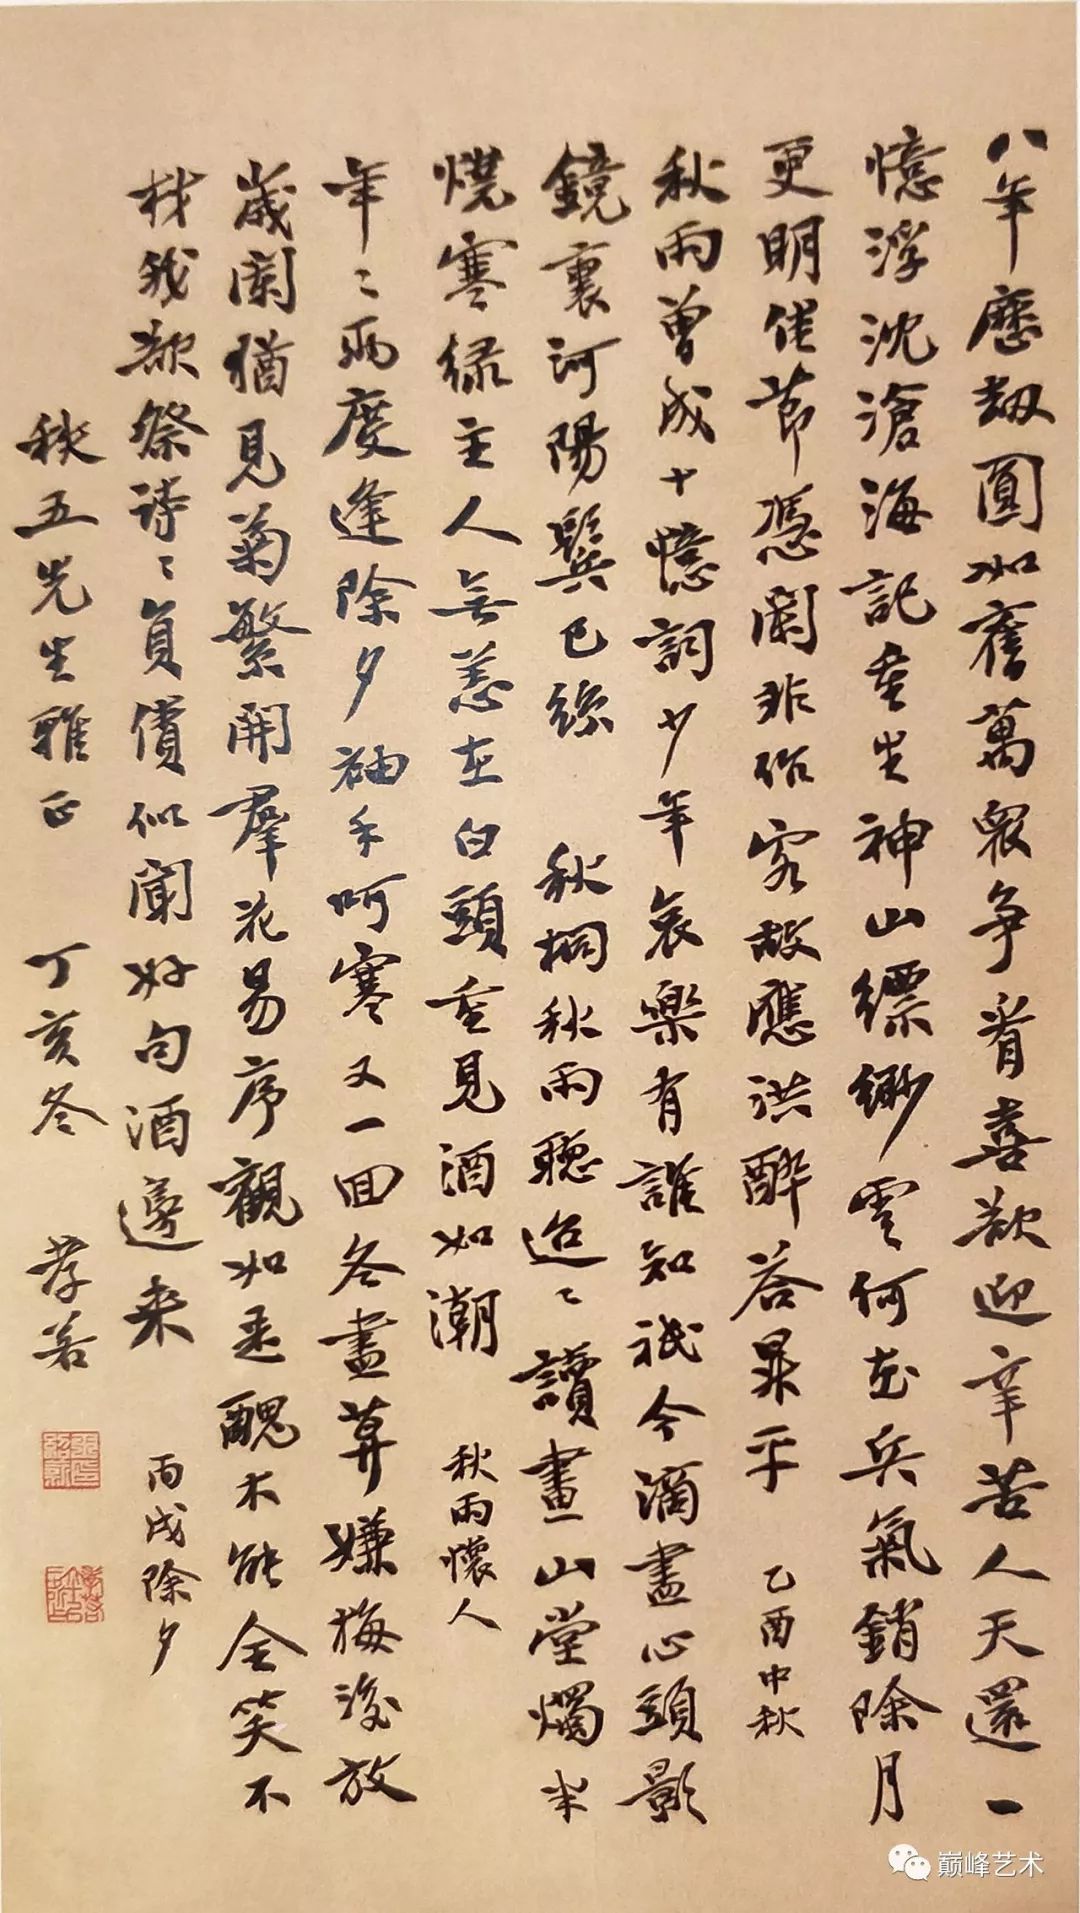 八年歷劫圓如舊萬衆爭看喜欲迎辛苦人天還一
憶浮沈滄海記重生神山縹緲雲何在兵氣銷除月
更明佳節憑闌非俗客故應洪醉答昇平 乙酉中秋
秋雨曾成十憶詞少年哀樂有誰知祇今滴盡心頭影
鏡裏河陽鬢已絲 秋桐秋雨聽迢〻讀畫山堂燭半
燒寒綠主人無恙在白頭重見酒如潮 秋雨懷人
年〻兩度逢除夕袖手呵寒又一回冬盡算嫌梅後放
歲闌猶見菊繁開羣花易序觀如是醜木能全笑不
材我欲祭詩〻負償似聞好句酒邊來 丙戌除夕
秋五先生雅正 丁亥冬 孝若
巅峰艺术